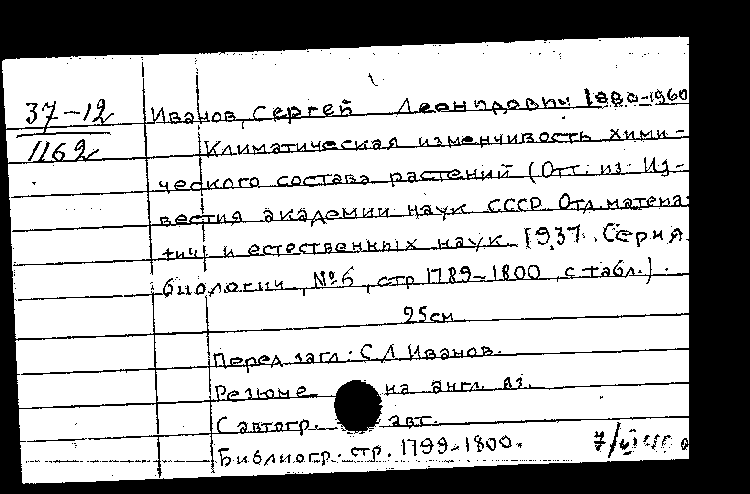 37-12
1162
Иванов, Сергей Леонидович 1880-1960
Климатическая изменчивость хими-
ческого состава растений (Отт. из Из-
вестия академии наук СССР Отд. матема-
тич. и естественных наук 1937. Серия
биологии, №6, стр 1789-1800, с табл.).
25см
Перед загл: С Л Иванов.
Резюме на англ. яз.
С автогр. авт.
Библиогр. стр. 1799-1800.